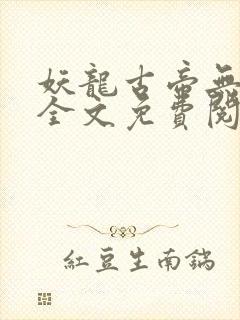 妖龍古帝無
全文免費閱
紅豆生南鍋